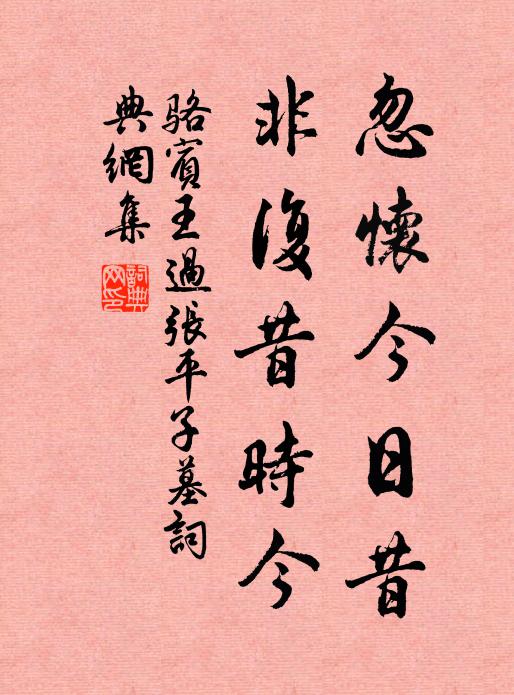 忽懷今日昔
非復昔時今
駱賓王過張平子墓詞
典網集
詞典網印